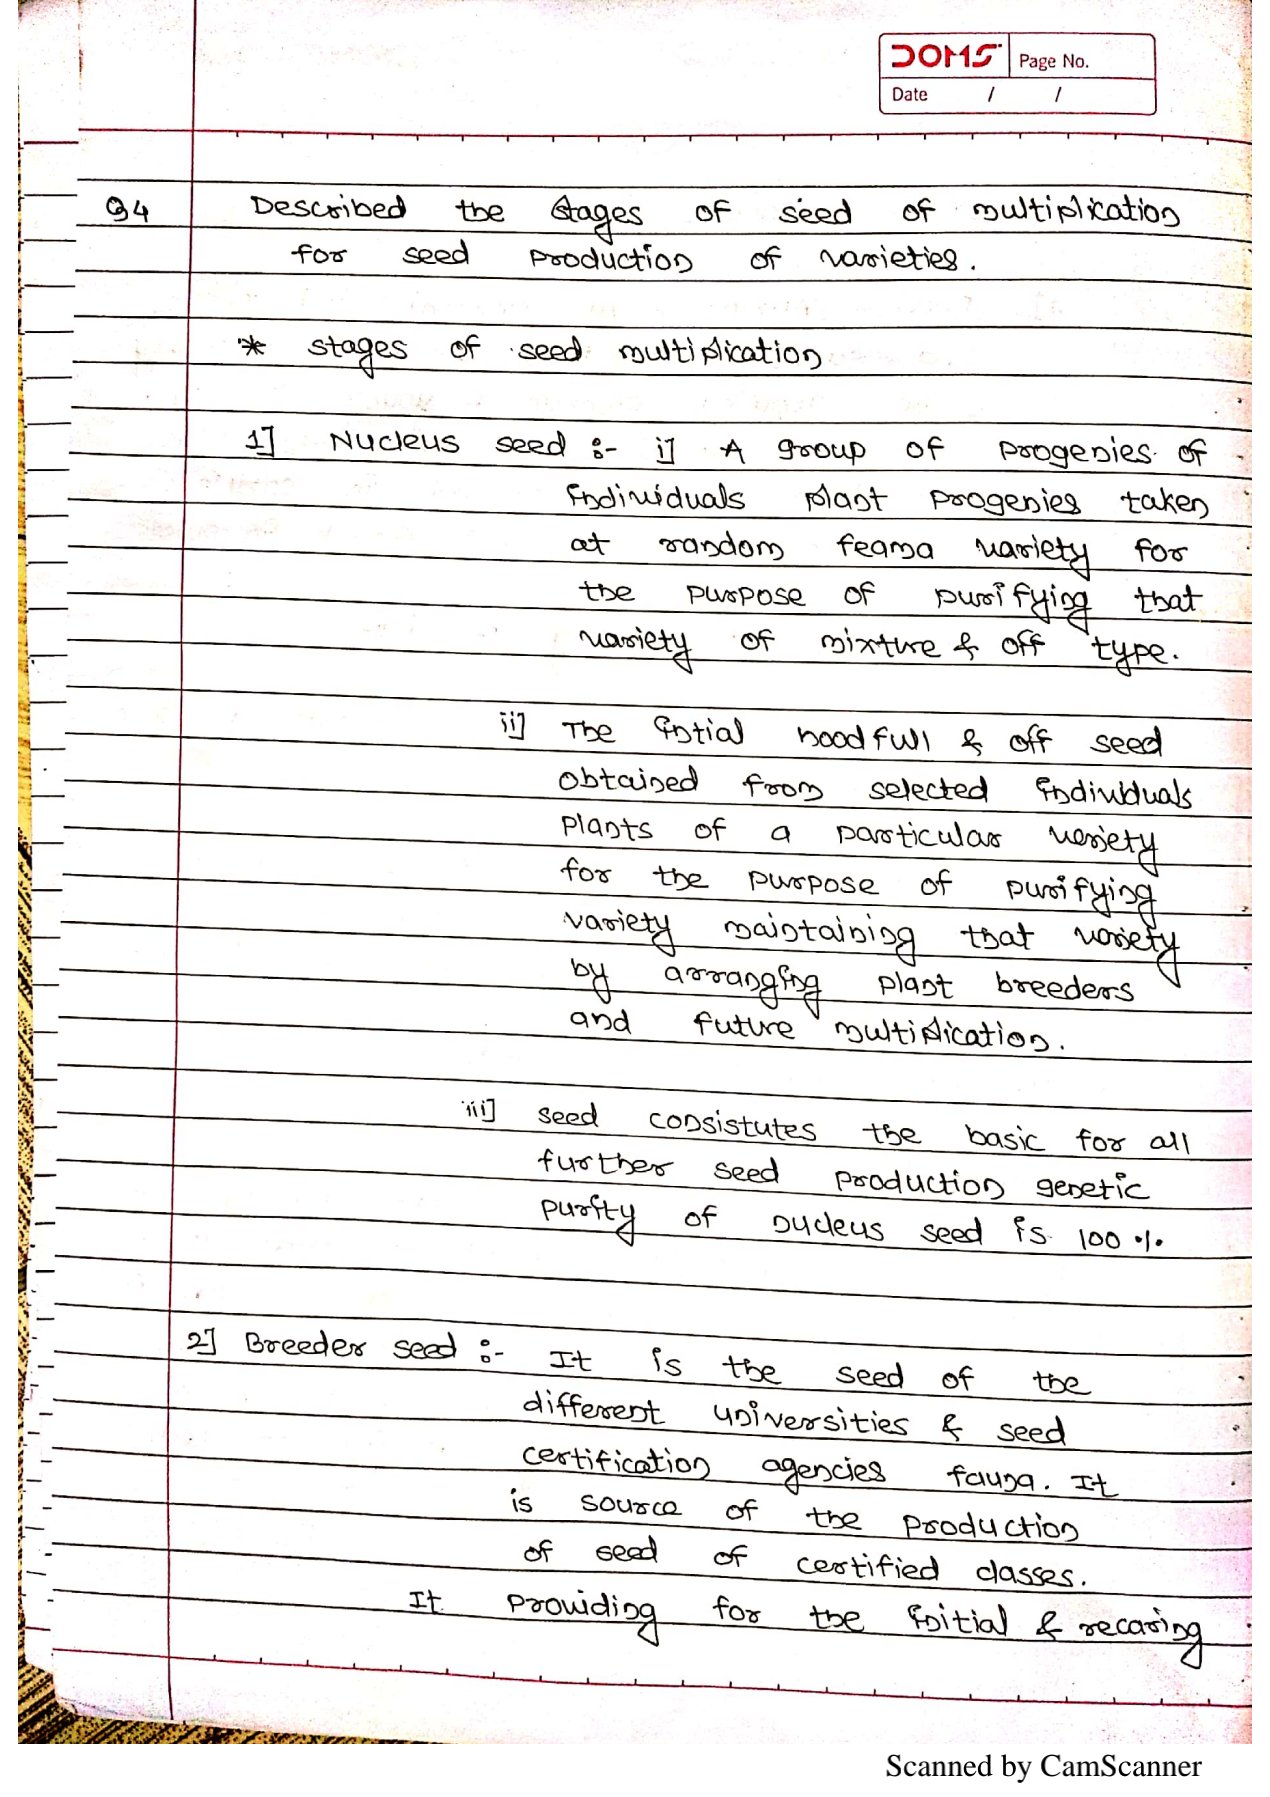 DOMS Page No.
Date / /
Q4 Described the stages of seed of multiplication
for seed production of varieties.
* stages of seed multiplication
1] Nucleus seed :- i] A group of progenies of
individuals plant progenies taken
at random feama variety for
the purpose of purifying that
variety of mixture & off type.
ii] The intial hoodfull & off seed
obtained from selected individuals
plants of a particular veriety
for the purpose of purifying
variety maintaining that variety
by arranging plant breeders
and future multiplication.
iii] seed consistutes the basic for all
further seed production genetic
purity of nucleus seed is 100 %
2] Breeder seed :- It is the seed of the
different universities & seed
certification agencies fauna. It
is source of the production
of seed of certified classes.
It providing for the initial & recaring
Scanned by CamScanner